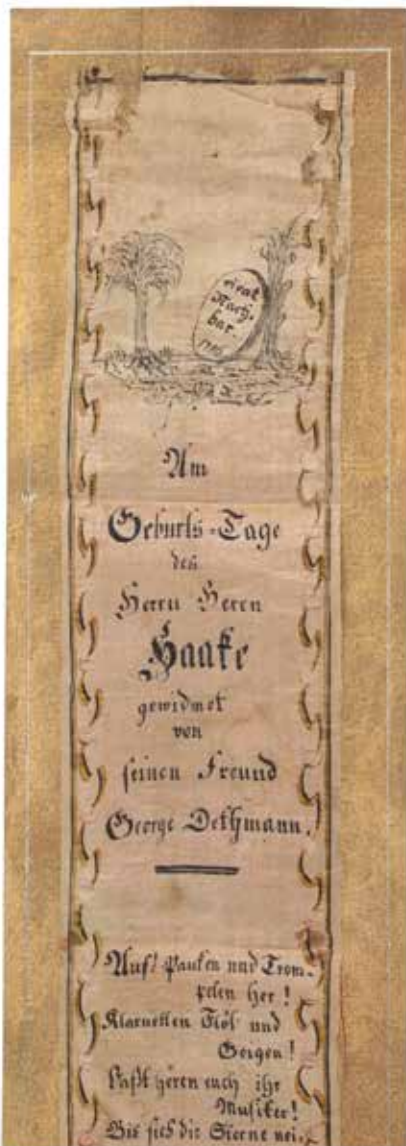 vivat
Nach-
bar.
Am
Geburts-Tage
des
Herrn Herrn
Haake
gewidmet
von
seinen Freund
George Dethmann.
Auf! Pauken und Trom-
peten her!
Klarnetten Flöt und
Geigen!
Laßt hören euch ihr
Musiker!
Bis sich die Sterne nei-